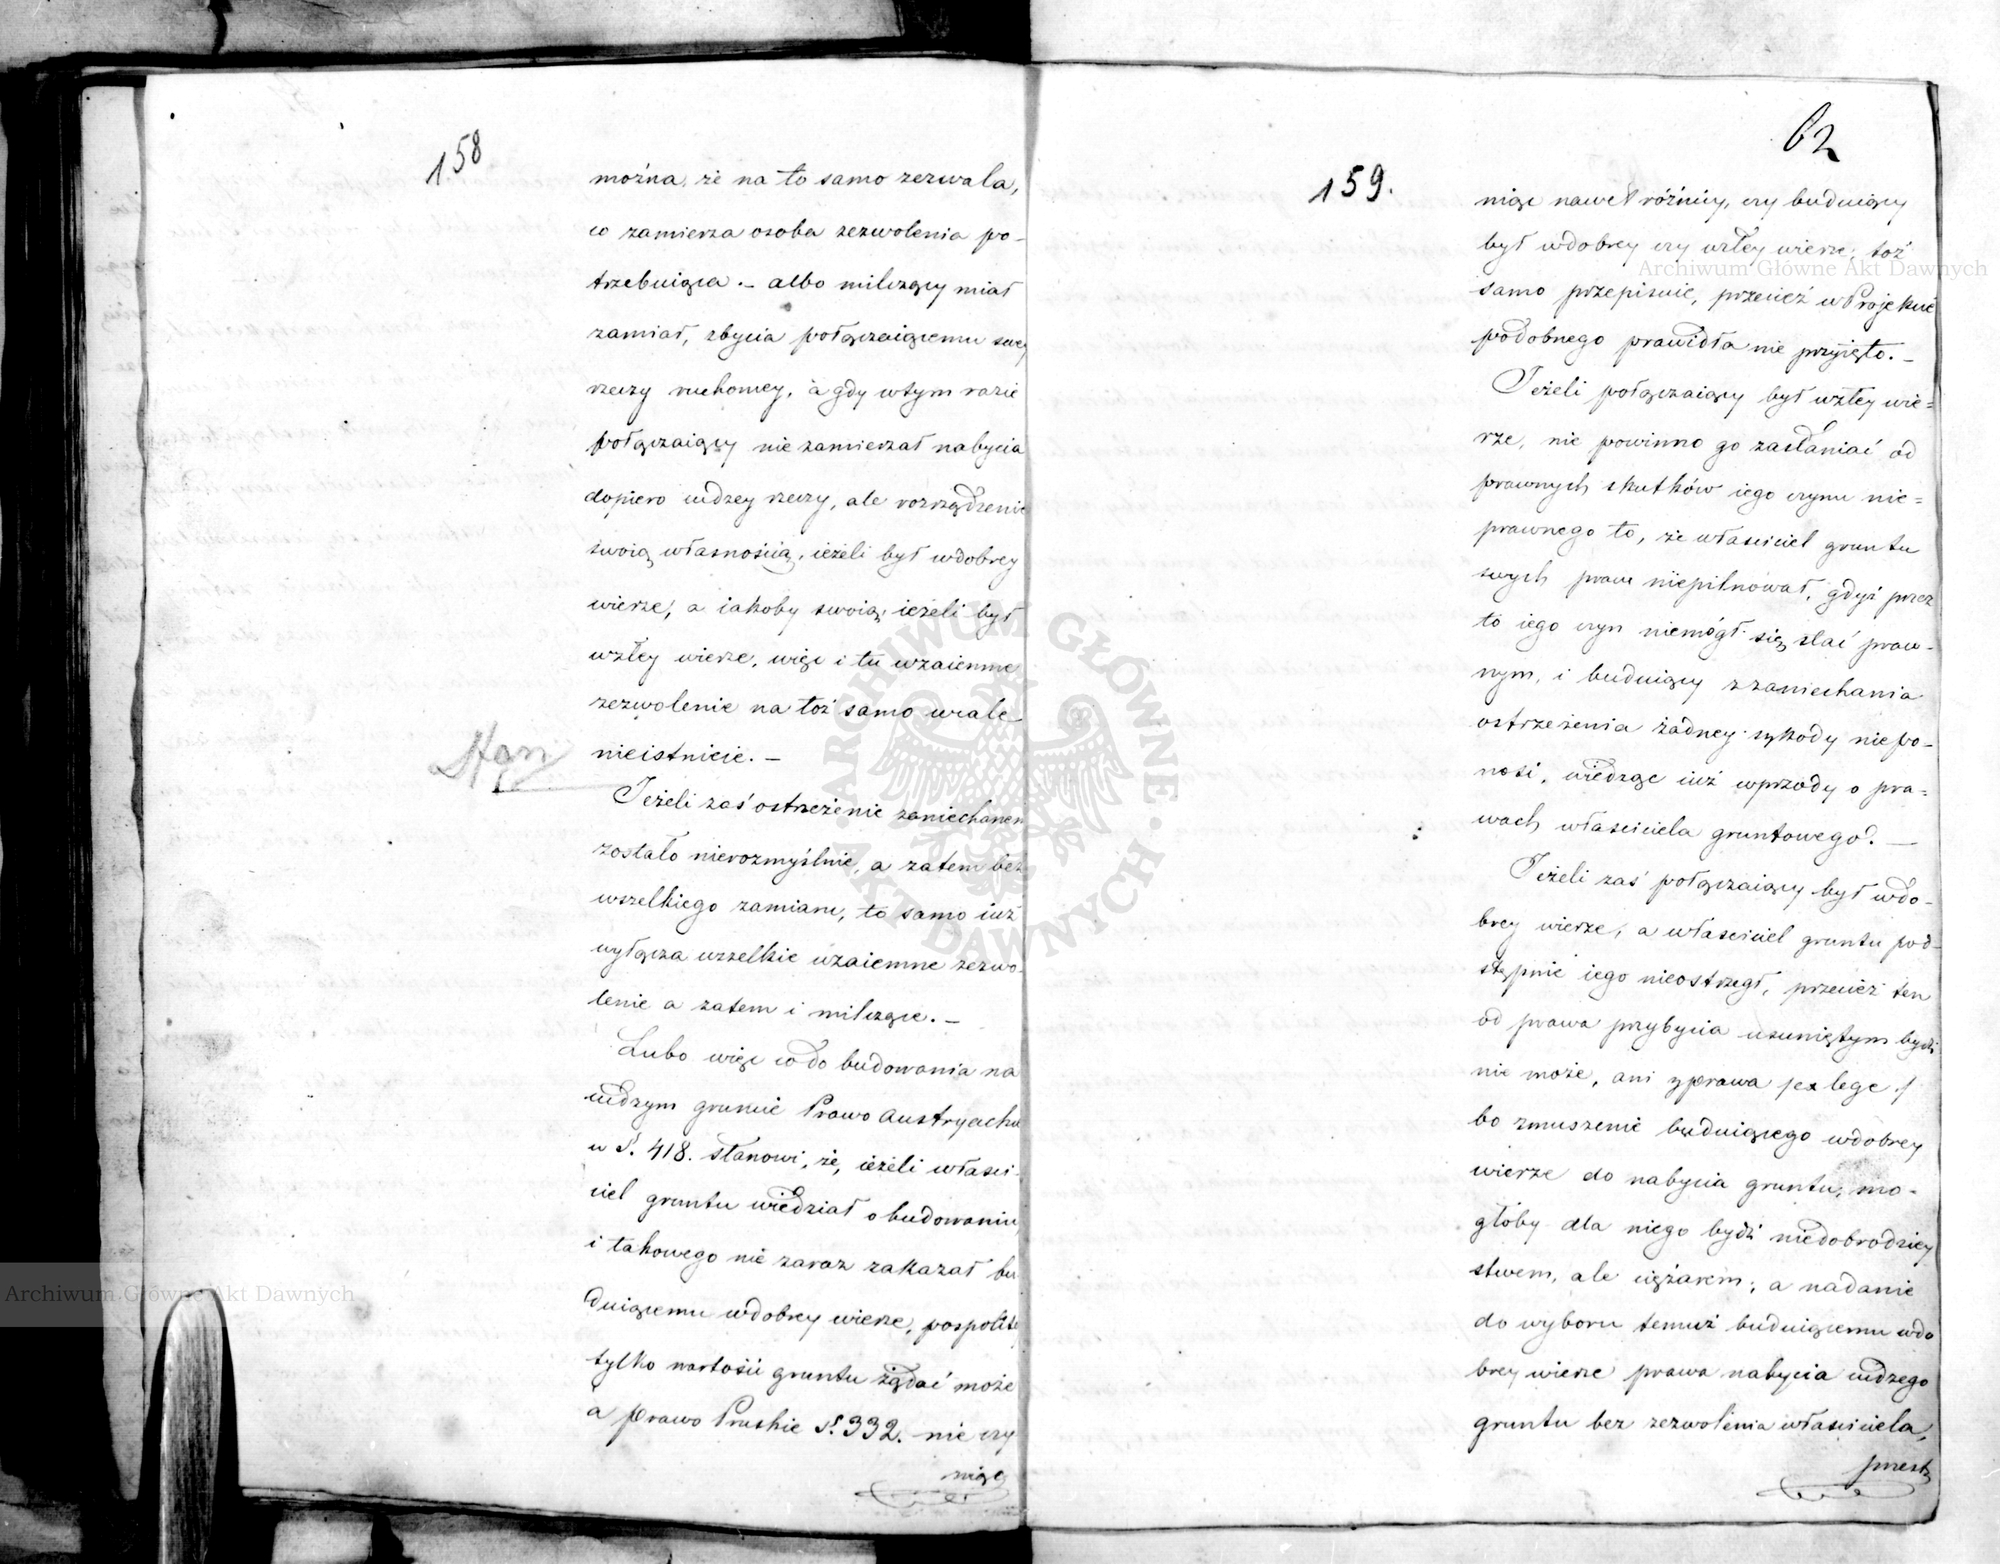 158
można, że na to samo zezwala,
co zamierza osoba zezwolenia po-
trzebuiąca. – albo milczący miał
zamiar, zbycia połączaiącemu swey
rzeczy ruchomey, a gdy wtym razie
połączaiący nie zamierzał nabycia
dopiero cudzey rzeczy, ale rozrządzenie
swoią własnością, ieżeli był wdobrey
wierze, a iakoby swoią, ieżeli był
wzłey wierze, więc i tu wzaiemne
zezwolenie na toż samo wcale
nieistnieie. –
Jeżeli zaś ostrzeżenie zaniechanem
zostało nierozmyślnie, a zatem bez
wszelkiego zamiaru, to samo iuż
wyłącza wszelkie wzaiemne zezwo-
lenie a zatem i milczące. –
Lubo więc co do budowania na
cudzym gruncie Prawo Austryackie
w §. 418. stanowi, że, ieżeli właści-
ciel gruntu wiedział o budowaniu,
i takowego nie zaraz zakazał bu
duiącemu wdobrey wierze, pospolitey
tylko wartości gruntu żądać może
a Prawo Pruskie §. 332. nie czy
niąc
62
159.
niąc nawet różnicy, czy buduiący
był wdobrey czy wzłey wierze; toż
samo przepisuie, przecież w Projekcie
podobnego prawidła nie przyięto. –
Jeżeli połączaiący był wzłey wie-
rze, nie powinno go zasłaniać od
prawnych skutków iego czynu nie-
prawnego to, że właściciel gruntu
swych praw niepilnował, gdyż przez
to iego czyn niemógł się stać praw-
nym, i buduiący z zaniechania
ostrzeżenia żadney szkody niepo-
nosi, wiedząc iuż wprzódy o pra-
wach właściciela gruntowego. –
Jeżeli zaś połączaiący był wdo-
brey wierze, a właściciel gruntu pod-
stępnie iego nieostrzegł, przecież ten
od prawa przybycia usuniętym bydź
nie może, ani z prawa /ex lege./
bo zmuszenie buduiącego wdobrey
wierze do nabycia gruntu, mo-
głoby dla niego bydź niedobrodziey
stwem, ale ciężarem; a nadanie
do wyboru temuż buduiącemu wdo
brey wierze prawa nabycia cudzego
gruntu bez zezwolenia właściciela,
Archiwum Główne Akt Dawnych
Archiwum Główne Akt Dawnych
ARCHIWUM GŁÓWNE AKT DAWNYCH